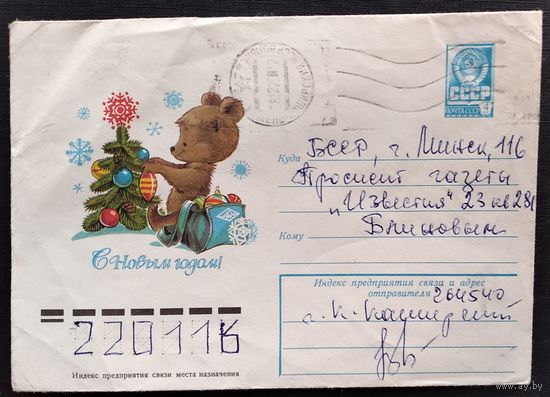 СССР
ПОЧТА
Куда БССР, г. Минск, 116
Проспект газеты
"Известия" 23 кв 281
Кому Блиновым
С Новым годом!
Индекс предприятия связи и адрес
отправителя 264540
220116
Индекс предприятия связи места назначения
www.ay.by